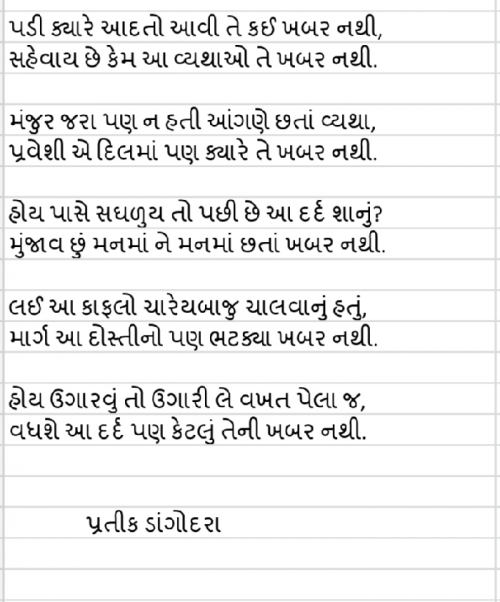 પડી ક્યારે આદતો આવી તે કઈ ખબર નથી,
સહેવાય છે કેમ આ વ્યથાઓ તે ખબર નથી.
મંજુર જરા પણ ન હતી આંગણે છતાં વ્યથા,
પ્રવેશી એ દિલમાં પણ ક્યારે તે ખબર નથી.
હોય પાસે સઘળુય તો પછી છે આ દર્દ શાનું?
મુંજાવ છું મનમાં ને મનમાં છતાં ખબર નથી.
લઈ આ કાફલો ચારેયબાજુ ચાલવાનું હતું,
માર્ગ આ દોસ્તીનો પણ ભટક્યા ખબર નથી.
હોય ઉગારવું તો ઉગારી લે વખત પેલા જ,
વધશે આ દર્દ પણ કેટલું તેની ખબર નથી.
પ્રતીક ડાંગોદરા